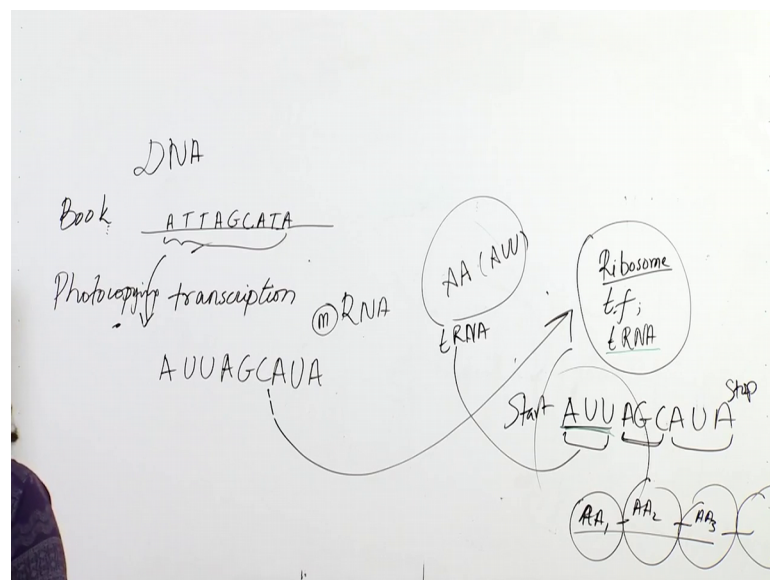 DNA
Book ATTAGCATA
Photocopying transcription
AUUAGCAUA
m RNA
AA (AUU)
tRNA
Ribosome
t.f;
tRNA
Start AUU AGC AUA Stop
AA1 - AA2 - AA3 -